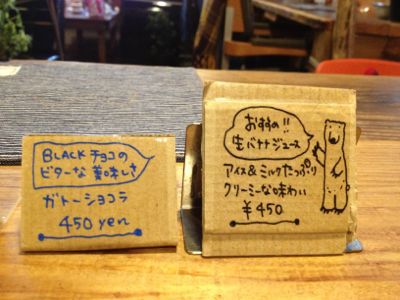 BLACKチョコの
ビターな美味しさ
ガトーショコラ
450 yen
おすすめ!!
生バナナジュース
アイス&ミルクたっぷり
クリーミーな味わい
¥450